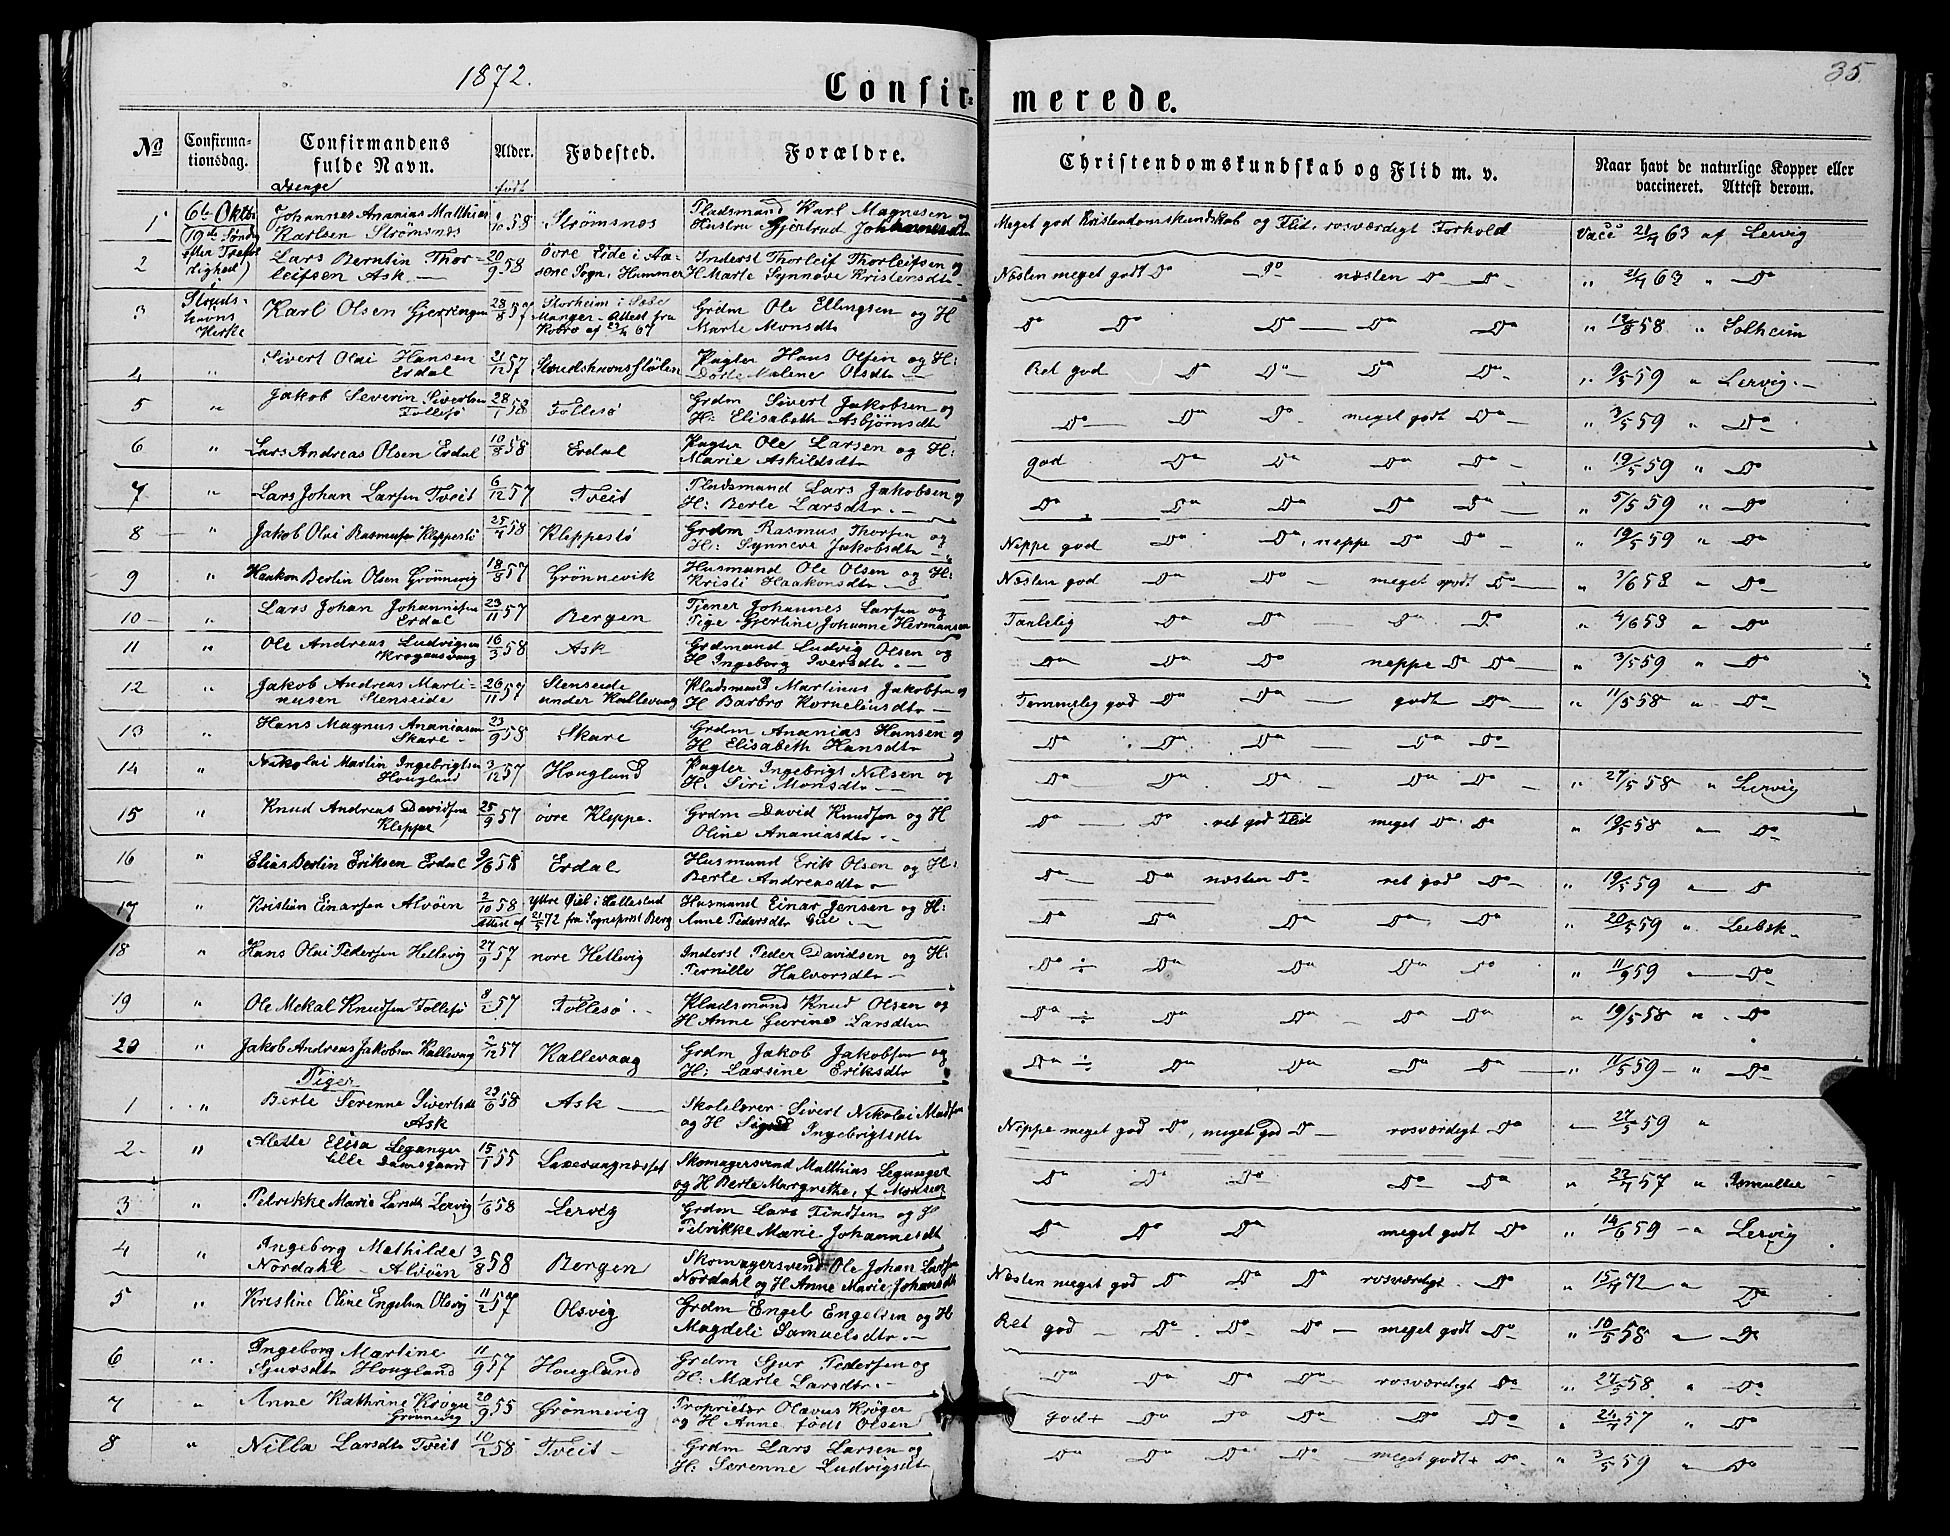 1872.
35
Confirmerede.
No
Confirmationsdag.
Confirmandens fulde Navn.
Alder.
Fødested.
Forældre.
Christendomskundskab og Flid m. v.
Naar havt de naturlige Kopper eller vaccineret. Attest derom.
Drenge
født
1 6te Oktbr Johannes Ananias Mathias Karlsen Strømsnæs 58 Strømsnæs Pladsmand Karl Magnesen og Hustru Gjertrud Johannesdtr Meget god Kristendomskundskab og Flid, rosværdigt Forhold Vacc 21/4 63 af Lervig
(19de Søndag efter Trefoldighed)
2 Lars Berntin Thorleifsen Ask 20/9 58 øvre Eide i Aasene Sogn, Hammer Inderst Thorleif Thorleifsen og H. Marte Synnøve Kristensdtr Næsten meget godt Do Do næsten Do Do " 21/4 63 " Do
Strudshavns Kirke
3 Karl Olsen Gjerringen 28/8 57 Storheim i Sæbø Manger - Attest fra Grdm Ole Ellingsen og H Marte Monsdtr Do Do Do Do Do " 12/8 58 " Solheim
4 " Sivert Olai Hansen Erdal 21/12 57 Strudshavnsstølen Pagter Hans Olsen og H: Dorte Malene Olsdtr Ret god Do Do Do Do " 9/5 59 " Lervig
5 " Jakob Severin Sivertsen Follesø 28/1 58 Follesø Grdm Sivert Jakobsen og H: Elisabeth Asbjørnsdtr Do Do Do meget godt Do " 3/5 59 " Do
6 " Lars Andreas Olsen Erdal 10/8 58 Erdal Pagter Ole Larsen og H: Marie Askildsdtr god Do Do Do Do " 19/5 59 " Do
7 " Lars Johan Larsen Tveit 6/12 57 Tveit Pladsmand Lars Jakobsen og H: Berte Larsdtr Do Do Do Do Do " 5/5 59 " Do
8 " Jakob Olai Rasmusen Kleppestø 25/4 58 Kleppestø Grdm Rasmus Thorsen og H: Synneve Jakobsdtr Neppe god Do Do, neppe Do Do " 19/5 59 " Do
9 " Haakon Bertin Olsen Grønnevig 18/8 57 Grønnevik Husmand Ole Olsen og H: Kristi Haakonsdtr Næsten god Do Do meget godt Do " 3/6 58 " Do
10 " Lars Johan Johannesen Erdal 23/11 57 Bergen Tjener Johannes Larsen og Pige Gjertine Johanne Hermansen Taalelig Do Do Do Do " 4/6 58 " Do
11 " Ole Andreas Ludvigsen 16/3 58 Ask Grdmand Ludvig Olsen og H Ingeborg Iversdtr Do Do Do neppe Do Do " 3/5 59 " Do
12 " Jakob Andreas Martinusen Stenseide 26/11 57 Stenseide under Kallevaag Pladsmand Martinus Jakobsen og H Barbro Korneliusdtr Temmelig god Do Do godt Do " 11/5 58 " Do
13 " Hans Magnus Ananiasen Skare 23/9 58 Skare Grdm Ananias Hansen og H Elisabeth Hansdtr Do Do Do Do Do
14 " Nikolai Martin Ingebrigtsen Hougland 3/12 57 Hougland Pagter Ingebrigt Nilsen og H. Siri Monsdtr Do Do Do Do Do " 27/5 58 " Lervig
15 " Knud Andreas Davidsen Kleppe 25/9 57 øvre Kleppe. Grdm David Knudsen og H Oline Ananiasdtr Do Do ret god Flid meget Do Do " 19/5 58 Do
16 " Elias Bertin Eriksen Erdal 9/6 58 Erdal Husmand Erik Olsen og H: Berte Andreasdtr Do Do næsten Do ret god Do " 19/5 59 Do
17 " Kristian Einarsen Alvøen 2/10 58 Attest af 21/5 72 fra Sogneprest Berg Husmand Einar Jensen og H: Anne Pedersdtr Do Do Do Do Do " 20/5 59 "
18 " Hans Olai Pedersen Hellevig 27/9 57 nore Hellevig Inderst Peder Davidsen og H: Pernille Halvorsdtr Do ÷ Do Do Do Do " 11/9 59 Do
19 " Ole Mekal Knudsen Follesø 8/2 57 Follesø Pladsmand Knud Olsen og H Anne Gurine Larsdtr Do ÷ Do Do Do Do " 19/5 58 " Do
20 " Jakob Andreas Jakobsen Kallevaag 2/12 57 Kallevaag Grdm Jakob Jakobsen og H: Larsine Eriksdtr Do ÷ Do Do Do Do " 11/5 59 " Do
Piger
1 " Berte Serenne Sivertsdtr Ask 23/6 58 Ask Skolelærer Sivert Nikolai Madsen og H Sigrid Ingebrigtsdtr Neppe meget god Do, meget god Do rosværdigt Do 27/5 59 "
2 " Alette Elisa Leganger lille Damsgaard 15/1 55 Laxevaagnæsset Skomagersvend Matthias Leganger og H Berte Margrethe, f Monsen Do Do Do Do Do " 22/4 57 "
3 " Petrikke Marie Larsdtr Lervig 1/6 58 Lervig Grdm Lars Findsen og H Petrikke Marie Johannesdtr Do Do Do meget godt Do " 14/6 59 " Lervig
4 " Ingeborg Mathilde Nordahl - Alvøen 3/8 58 Bergen Skomagersvend Ole Johan Larsen Nordahl og H Anne Marie Johansdtr Næsten meget god Do Do Do rosværdigt Do " 15/4 72 " Do
5 " Kristine Oline Engelsen Olsvig 11/2 57 Olsvig Grdm Engel Engelsen og H Magdeli Samuelsdtr Ret god Do Do Do meget godt Do " 10/5 58 Do
6 " Ingeborg Martine Sjursdtr Hougland 11/9 57 Hougland Grdm Sjur Pedersen og H: Marte Larsdtr Do Do Do Do rosværdigt Do " 27/5 58 " Do
7 " Anne Kathrine Krøger Grønnevig 20/9 55 Grønnevig Proprietær Olavus Krøger og H Anne, født Olsen god+ Do Do Do Do Do " 24/4 57 " Do
8 " Nilla Larsdtr Tveit 10/2 58 Tveit Grdm Lars Larsen og H: Serenne Ludvigsdtr Do Do Do Do meget godt+ Do " 3/5 59 Do